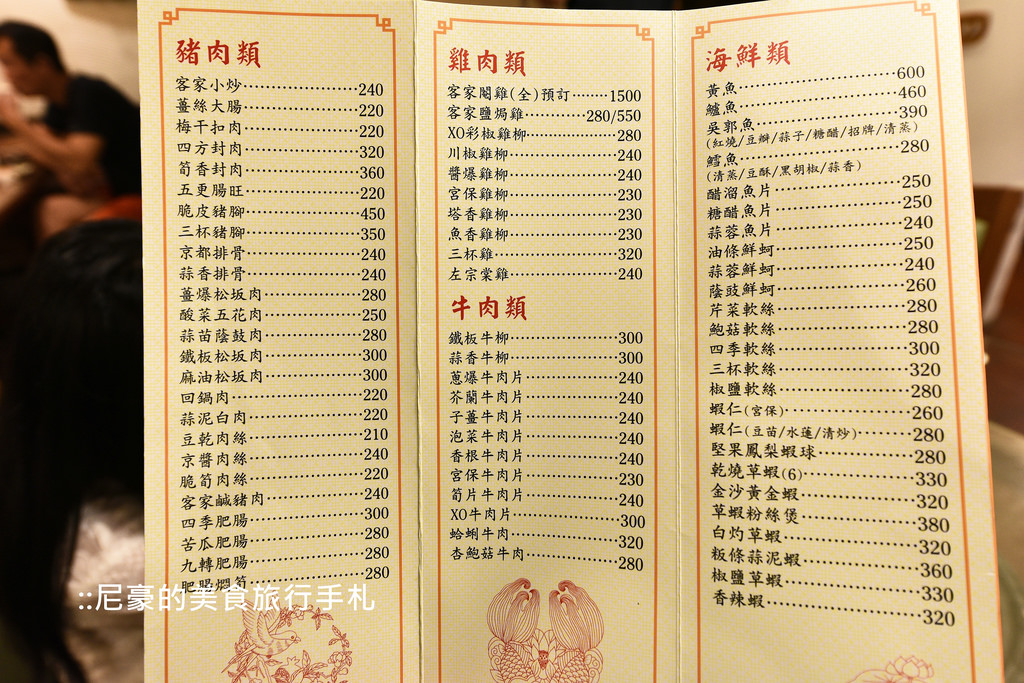 豬肉類
客家小炒 240
薑絲大腸 220
梅干扣肉 220
四方封肉 320
筍香封肉 360
五更腸旺 220
脆皮豬腳 450
三杯豬腳 350
京都排骨 240
蒜香排骨 240
薑爆松坂肉 280
酸菜五花肉 250
蒜苗蔭鼓肉 280
鐵板松坂肉 300
麻油松坂肉 300
回鍋肉 220
蒜泥白肉 220
豆乾肉絲 210
京醬肉絲 240
脆筍肉絲 220
客家鹹豬肉 240
四季肥腸 300
苦瓜肥腸 280
九轉肥腸 280
肥腸燜筍 280
雞肉類
客家閹雞(全)預訂 1500
客家鹽焗雞 280/550
XO彩椒雞柳 280
川椒雞柳 240
醬爆雞柳 240
宮保雞柳 230
塔香雞柳 230
魚香雞柳 230
三杯雞 320
左宗棠雞 240
牛肉類
鐵板牛柳 300
蒜香牛柳 300
蔥爆牛肉片 240
芥蘭牛肉片 240
子薑牛肉片 240
泡菜牛肉片 240
香根牛肉片 240
宮保牛肉片 230
筍片牛肉片 240
XO牛肉片 300
蛤蜊牛肉 320
杏鮑菇牛肉 280
海鮮類
黃魚 600
鱸魚 460
吳郭魚 390
(紅燒/豆瓣/蒜子/糖醋/招牌/清蒸)
鱈魚 280
(清蒸/豆酥/黑胡椒/蒜香)
醋溜魚片 250
糖醋魚片 250
蒜蓉魚片 240
油條鮮蚵 250
蒜蓉鮮蚵 240
蔭豉鮮蚵 260
芹菜軟絲 280
鮑菇軟絲 280
四季軟絲 300
三杯軟絲 320
椒鹽軟絲 280
蝦仁(宮保) 260
蝦仁(豆苗/水蓮/清炒) 280
堅果鳳梨蝦球 280
乾燒草蝦(6) 330
金沙黃金蝦 320
草蝦粉絲煲 380
白灼草蝦 320
粄條蒜泥蝦 360
椒鹽草蝦 330
香辣蝦 320
::尼豪的美食旅行手札